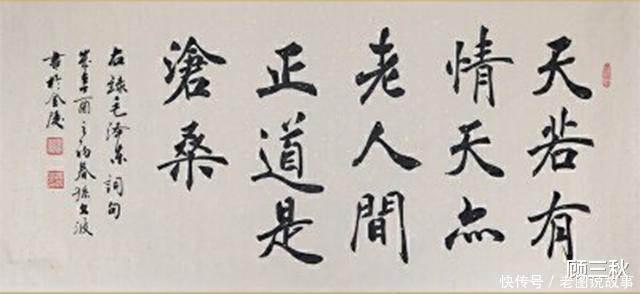 天若有
情天亦
老人間
正道是
滄桑
右錄毛澤東詞句
歲
書於金陵
顾三秋
快传号/老图说故事